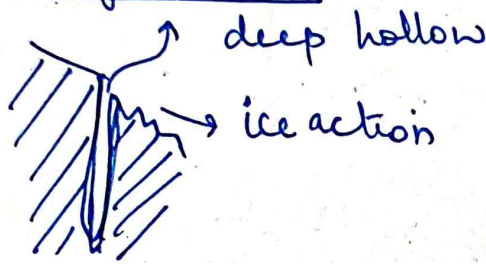 deep hollow
ice action